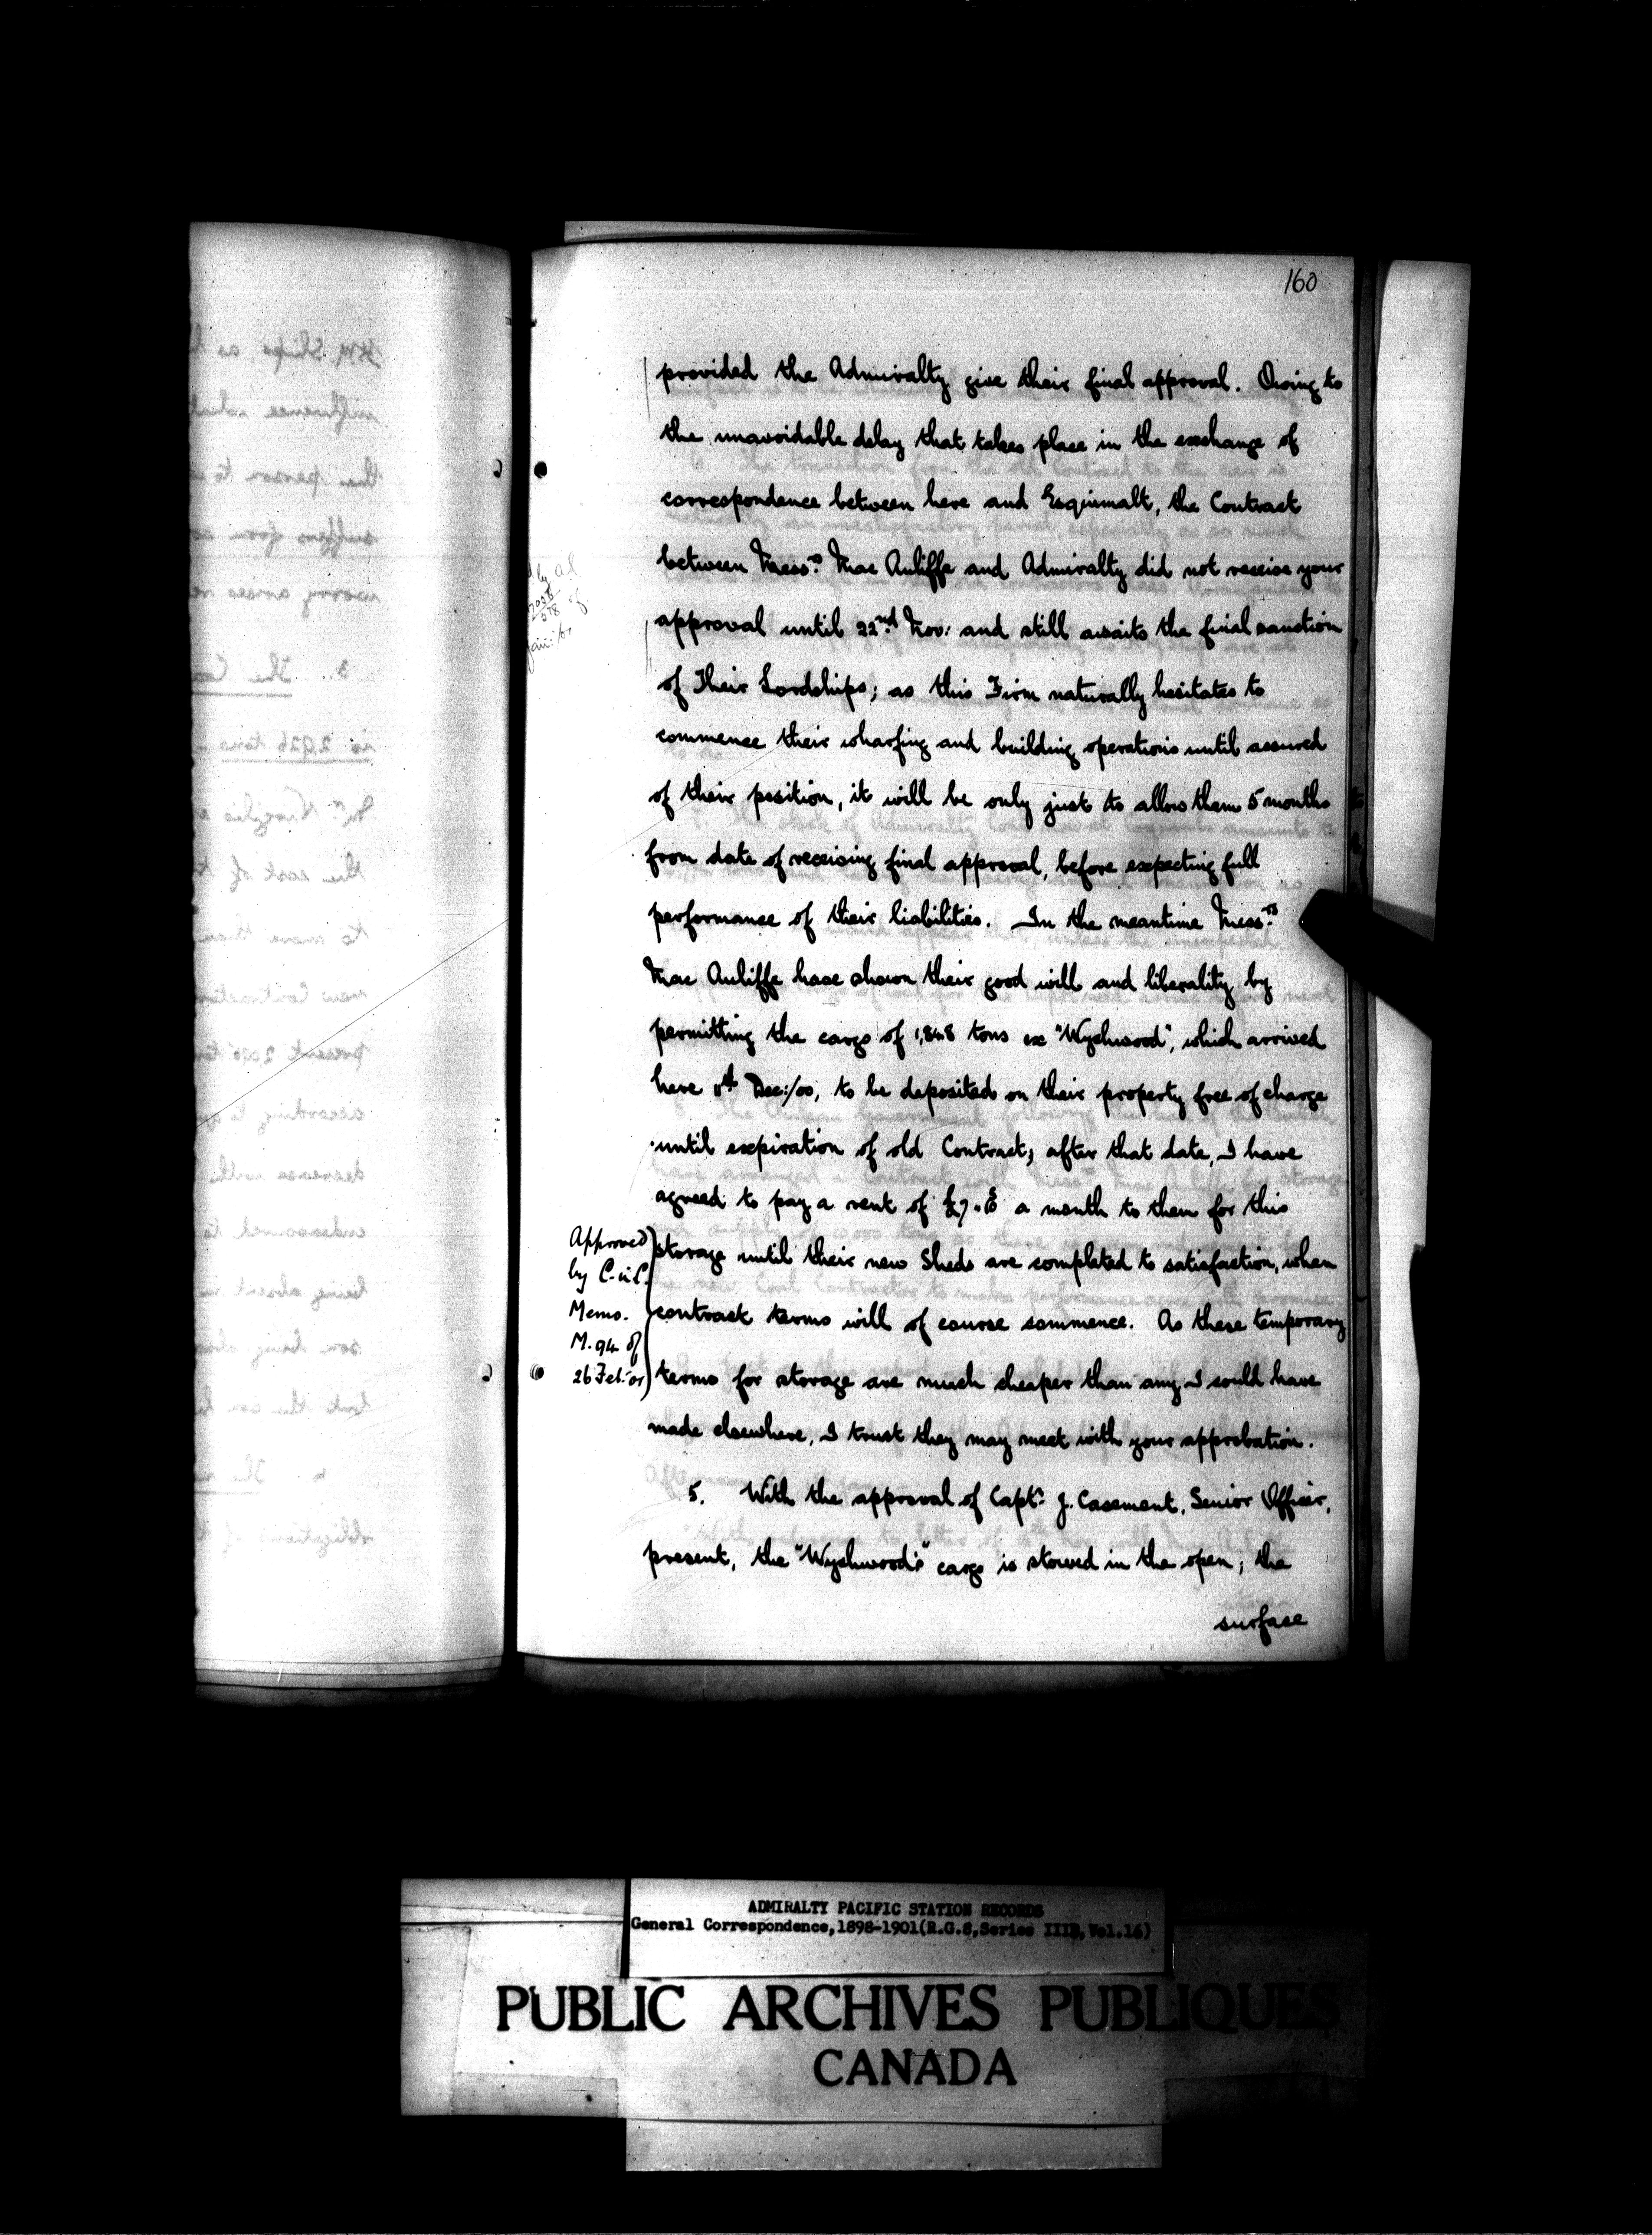 160
provided the Admiralty give their final approval. Owing to
the unavoidable delay that takes place in the exchange of
correspondence between here and Esquimalt, the Contract
between Mess.rs Mac Auliffe and Admiralty did not receive your
approval until 22nd Nov: and still awaits the final sanction
of Their Lordships; as this Firm naturally hesitates to
commence their wharfing and building operations until assured
of their position, it will be only just to allow them 5 months
from date of receiving final approval, before expecting full
performance of their liabilities. In the meantime Mess.rs
Mac Auliffe have shown their good will and liberality by
permitting the cargo of 1,848 tons ex "Wychwood", which arrived
here 11th Dec:/00, to be deposited on their property free of charge
until expiration of old Contract; after that date, I have
agreed to pay a rent of a month to them for this
storage until their new Sheds are completed to satisfaction, when
contract terms will of course commence. As these temporary
terms for storage are much cheaper than any I could have
made elsewhere, I trust they may meet with your approbation.
Approved
by C.-in-C.
Memo.
M. 94 of
26 Feb: 01
5. With the approval of Capt: J. Casement, Senior Officer,
present, the "Wychwood's" cargo is stowed in the open; the
surface
ADMIRALTY PACIFIC STATION RECORDS
General Correspondence,1898-1901(R.G.8,Series IIIB,Vol.16)
PUBLIC ARCHIVES PUBLIQUES
CANADA